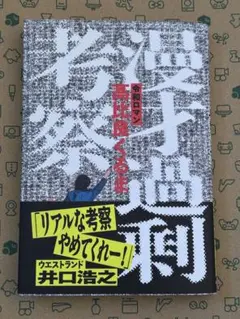 漫才過剰
考察
令和ロマン
髙比良くるま
「リアルな考察
やめてくれー!」
ウエストランド
井口浩之